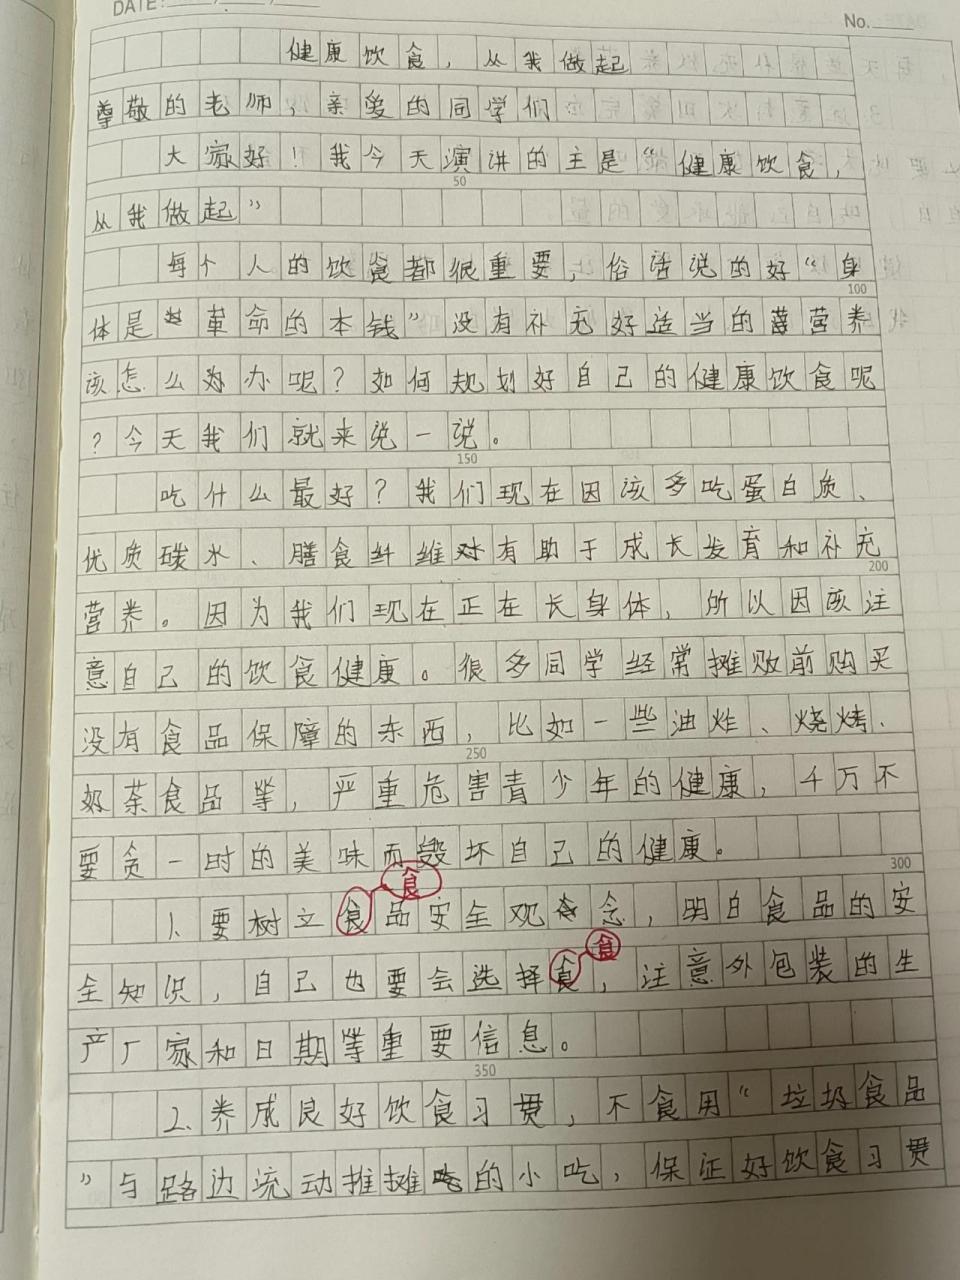 DATE:
No.
健康饮食，从我做起
尊敬的老师，亲爱的同学们
大家好！我今天演讲的主是“健康饮食，
50
从我做起”
每个人的饮食都很重要，俗话说的好“身
100
体是革命的本钱”没有补充好适当的营养
该怎么办呢？如何规划好自己的健康饮食呢
？今天我们就来说一说。
150
吃什么最好？我们现在因该多吃蛋白质、
优质碳水、膳食纤维对有助于成长发育和补充
200
营养。因为我们现在正在长身体，所以因该注
意自己的饮食健康。很多同学经常摊贩前购买
没有食品保障的东西，比如一些油炸、烧烤、
250
奶茶食品等，严重危害青少年的健康，千万不
要贪一时的美味而毁坏自己的健康。
300
食
1.要树立食品安全观念，明白食品的安
食
全知识，自己也要会选择食，注意外包装的生
产厂家和日期等重要信息。
350
2.养成良好饮食习贯，不食用“垃圾食品
”与路边流动推摊的小吃，保证好饮食习贯